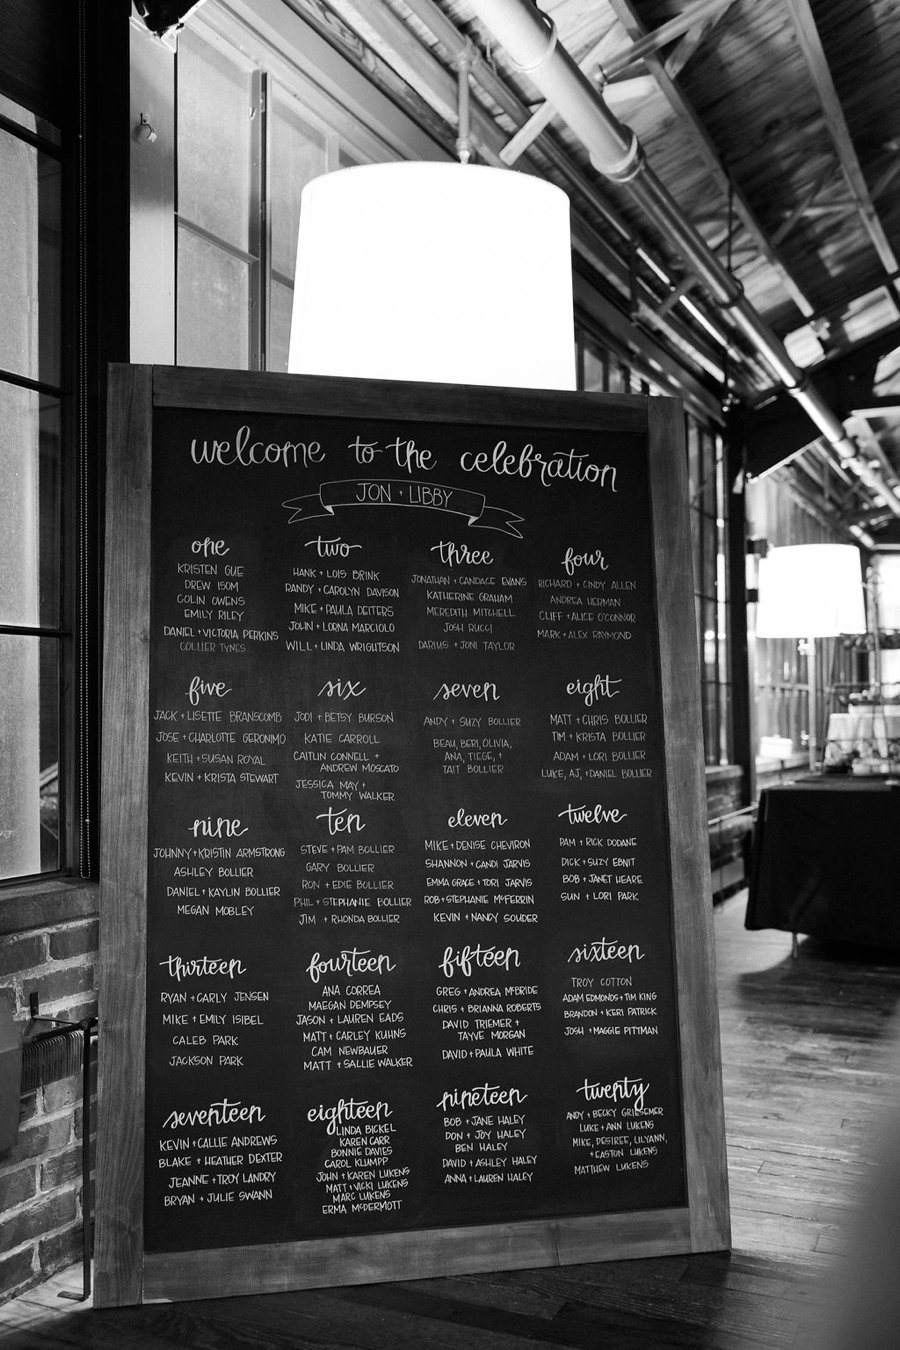 welcome to the celebration
JON + LIBBY
one
KRISTEN GUE
DREW ISOM
COLIN OWENS
EMILY RILEY
DANIEL + VICTORIA PERKINS
COLLIER TYNES
two
HANK + LOIS BRINK
RANDY + CAROLYN DAVISON
MIKE + PAULA DEITERS
JOHN + LORNA MARCIOLO
WILL + LINDA WRIGHTSON
three
JONATHAN + CANDACE EVANS
KATHERINE GRAHAM
MEREDITH MITCHELL
JOSH RUCCI
DARIUS + JONI TAYLOR
four
RICHARD + CINDY ALLEN
ANDREA HERMAN
CLIFF + ALICE O'CONNOR
MARK + ALEX RAYMOND
five
JACK + LISETTE BRANSCOMB
JOSE + CHARLOTTE GERONIMO
KEITH + SUSAN ROYAL
KEVIN + KRISTA STEWART
six
JODI + BETSY BURSON
KATIE CARROLL
CAITLIN CONNELL +
ANDREW MOSCATO
JESSICA MAY +
TOMMY WALKER
seven
ANDY + SUZY BOLLIER
BEAU, BERI, OLIVIA,
ANA, TIEGE, +
TAIT BOLLIER
eight
MATT + CHRIS BOLLIER
TIM + KRISTA BOLLIER
ADAM + LORI BOLLIER
LUKE, AJ, + DANIEL BOLLIER
nine
JOHNNY + KRISTIN ARMSTRONG
ASHLEY BOLLIER
DANIEL + KAYLIN BOLLIER
MEGAN MOBLEY
ten
STEVE + PAM BOLLIER
GARY BOLLIER
RON + EDIE BOLLIER
PHIL + STEPHANIE BOLLIER
JIM + RHONDA BOLLIER
eleven
MIKE + DENISE CHEVIRON
SHANNON + CANDI JARVIS
EMMA GRACE + TORI JARVIS
ROB + STEPHANIE MCFERRIN
KEVIN + NANCY SOUDER
twelve
PAM + RICK DODANE
DICK + SUZY EBNIT
BOB + JANET HEARE
SUN + LORI PARK
thirteen
RYAN + CARLY JENSEN
MIKE + EMILY ISIBEL
CALEB PARK
JACKSON PARK
fourteen
ANA CORREA
MAEGAN DEMPSEY
JASON + LAUREN EADS
MATT + CARLEY KUHNS
CAM NEWBAUER
MATT + SALLIE WALKER
fifteen
GREG + ANDREA MCBRIDE
CHRIS + BRIANNA ROBERTS
DAVID TRIEMER +
TAYVE MORGAN
DAVID + PAULA WHITE
sixteen
TROY COTTON
ADAM EDMONDS + TIM KING
BRANDON + KERI PATRICK
JOSH + MAGGIE PITTMAN
seventeen
KEVIN + CALLIE ANDREWS
BLAKE + HEATHER DEXTER
JEANNE + TROY LANDRY
BRYAN + JULIE SWANN
eighteen
LINDA BICKEL
KAREN CARR
BONNIE DAVIES
CAROL KLUMPP
JOHN + KAREN LUKENS
MATT + VICKI LUKENS
MARC LUKENS
ERMA MCDERMOTT
nineteen
BOB + JANE HALEY
DON + JOY HALEY
BEN HALEY
DAVID + ASHLEY HALEY
ANNA + LAUREN HALEY
twenty
ANDY + BECKY GRIESEMER
LUKE + ANN LUKENS
MIKE, DESIREE, LILYANN,
+ EASTON LUKENS
MATTHEW LUKENS